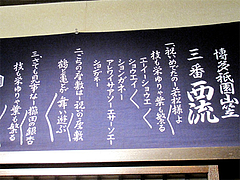 博多祇園山笠
三番 西流
一、祝いめでたの若松様よ
枝も栄ゆりゃ葉も繁る
エイーショウエイー
ショウエイー
ションガネー
アレワイサソー エサーソエー
ションガネー
二、こちの座敷は祝の座敷
鶴と亀とが舞い遊ぶ
三、さても見事な櫛田の銀杏
枝も栄ゆりゃ葉も繁る